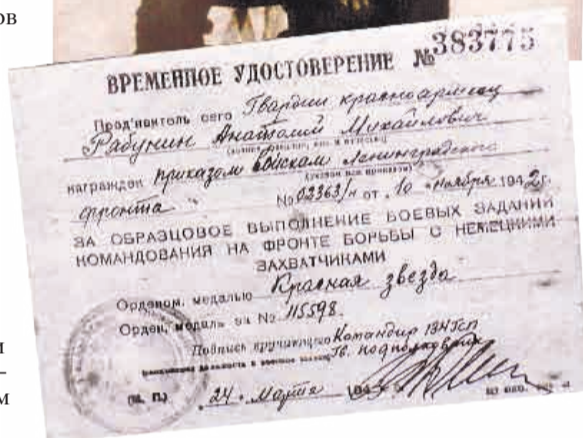 ов
ВРЕМЕННОЕ УДОСТОВЕРЕНИЕ №383775
Пред'явитель сего Гвардии красноармеец
Рабунин Анатолий Михайлович
награжден приказом войскам Ленинградского
фронта
№ 02363/н от „10 " ноября 1942г.
ЗА ОБРАЗЦОВОЕ ВЫПОЛНЕНИЕ БОЕВЫХ ЗАДАНИЙ
КОМАНДОВАНИЯ НА ФРОНТЕ БОРЬБЫ С НЕМЕЦКИМИ
ЗАХВАТЧИКАМИ
Орденом, медалью Красная звезда
Орден, медаль за № 115598.
Подпись вручающего Командир
Гв. подполковник
(М. П.) „24" Марта
и
–
м